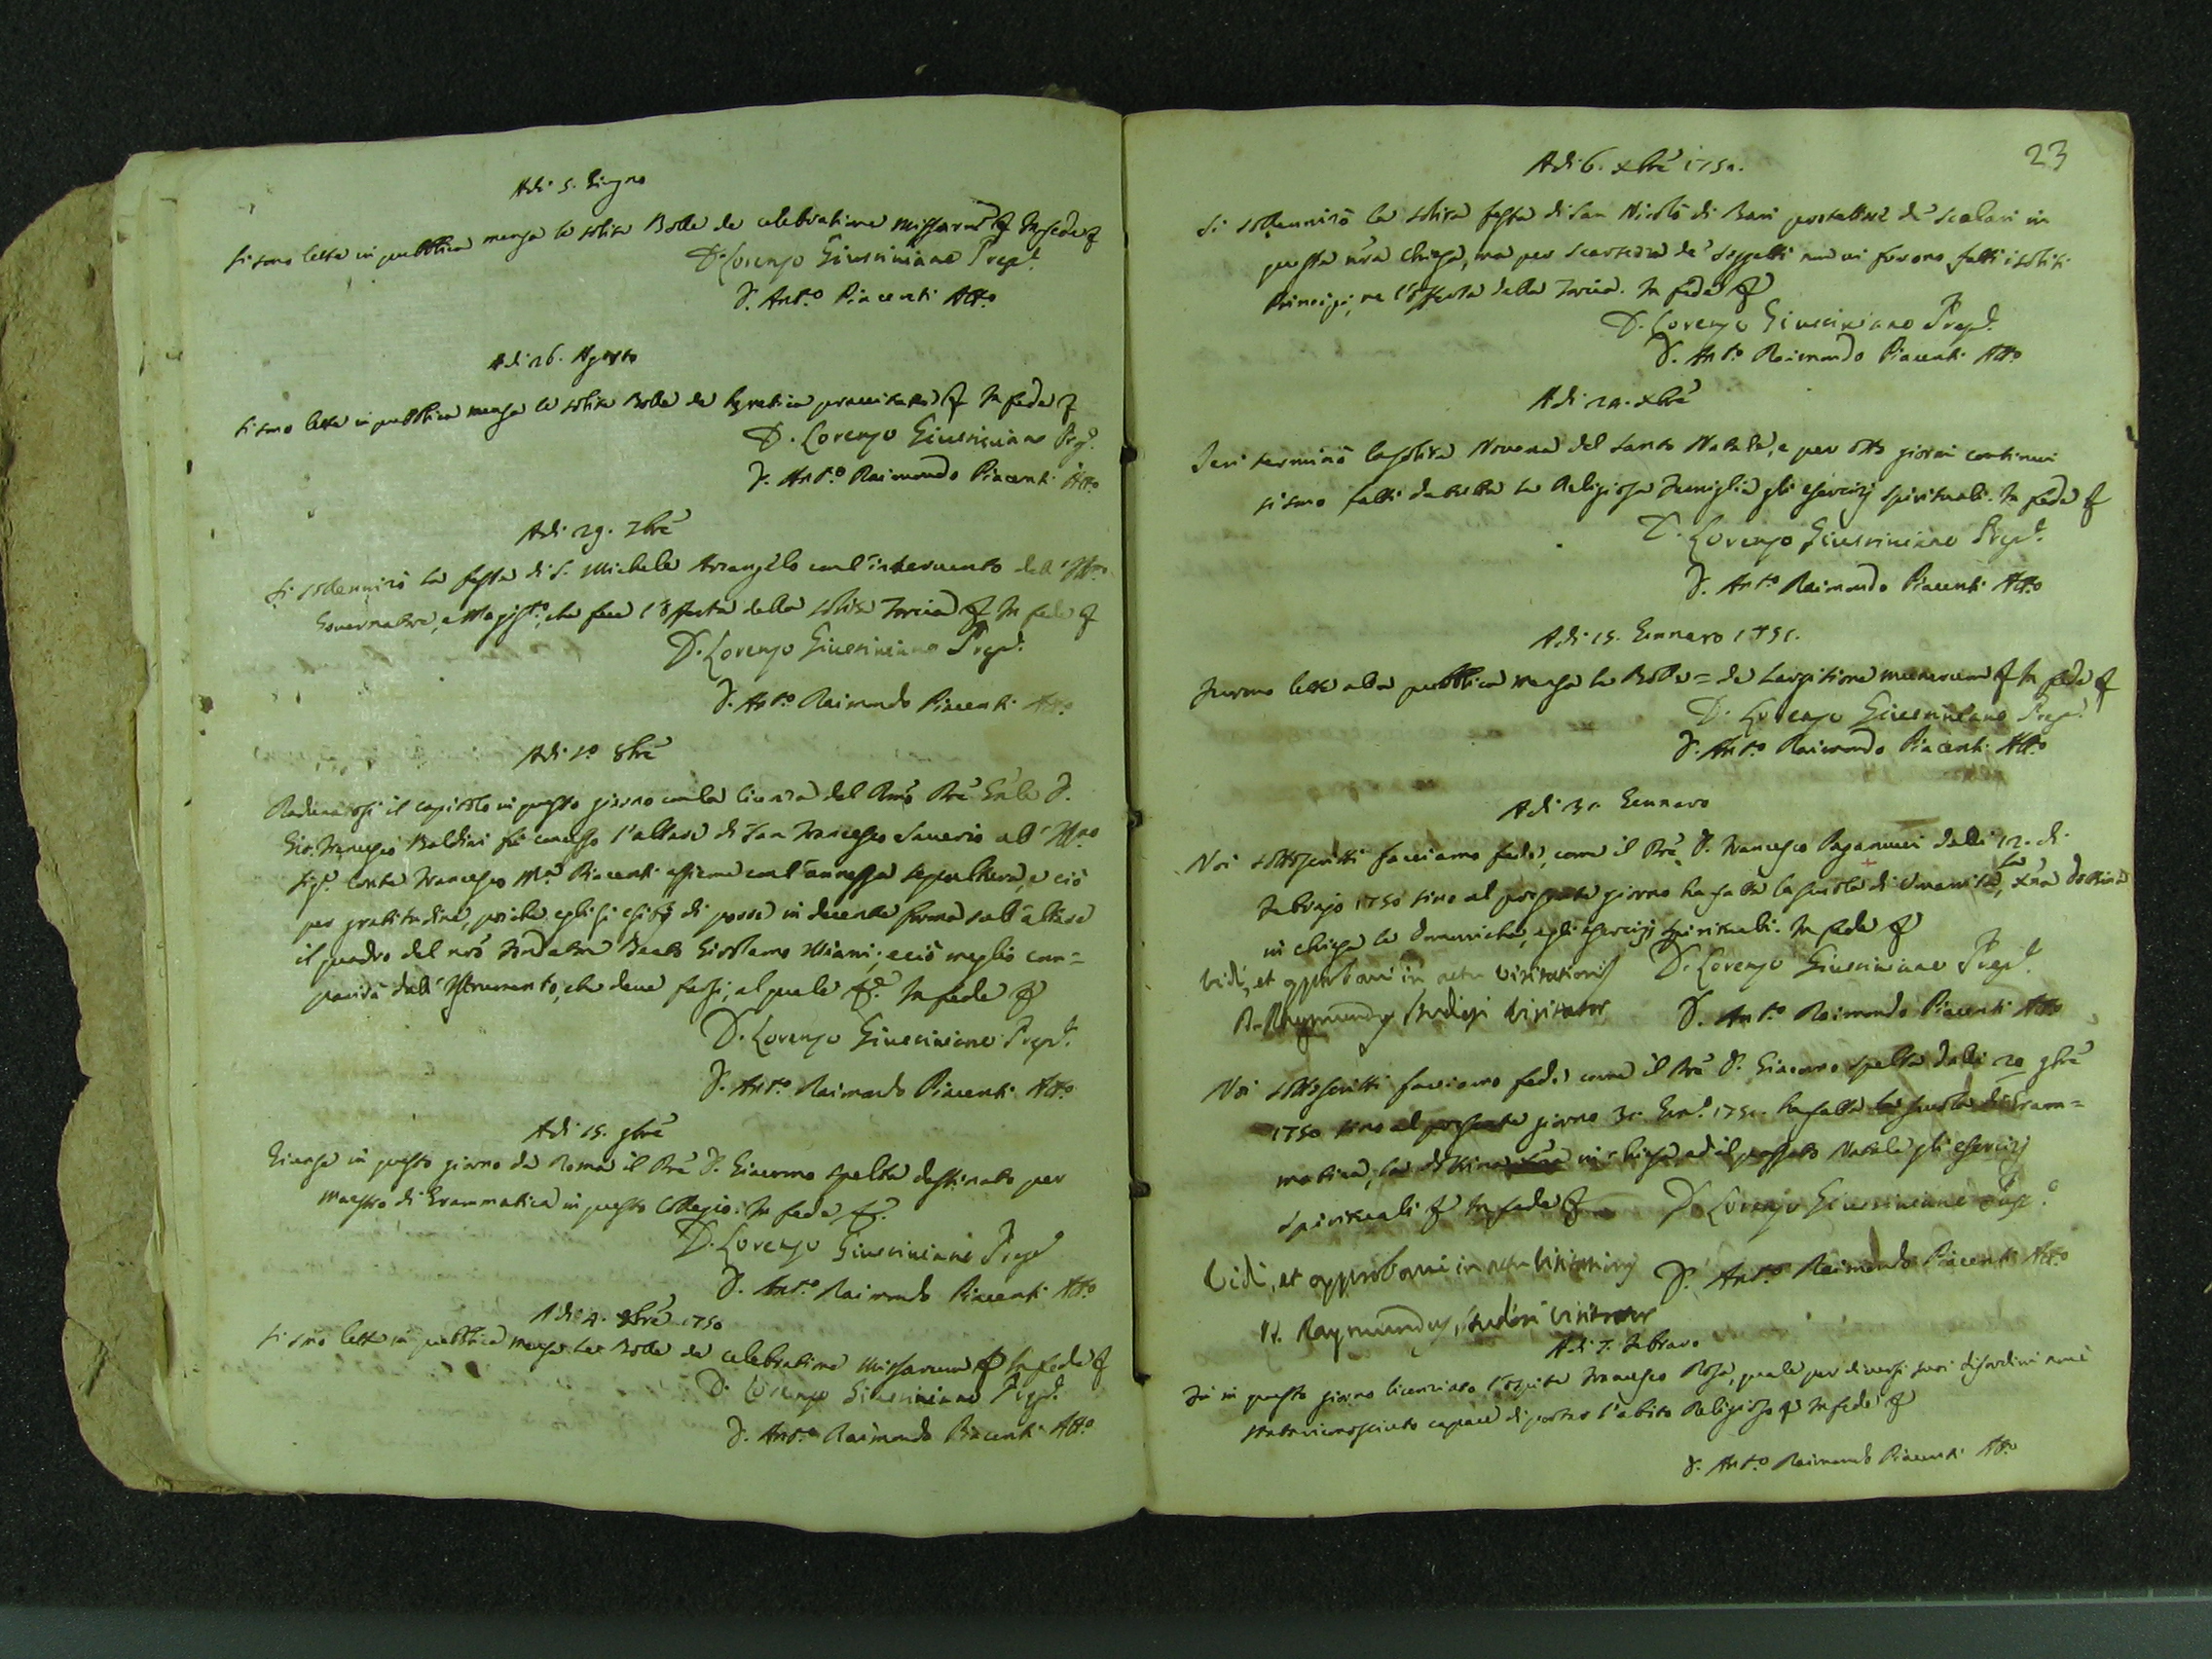 Adi 5. Giugno
Si sono lette in pubblica mensa le solite Bolle de celebratione Missarum &. In fede &
D. Lorenzo Giustiniano Prep.o
D. Ant.o Piacenti Att.o
Adi 26. Agosto
Si sono lette in pubblica mensa le solite Bolle de heretica pravitate & In fede &
D. Lorenzo Giustiniano Prep.o
D. Ant.o Raimondo Piacenti Att.o
Adi 29. 7brè
Si solennizò la festa di S. Michele Arcangelo coll'intervento dell'Ill.mo
Governatore, e Magist.o, che fece l'offerta della solita Torcia & In fede &
D. Lorenzo Giustiniano Prep.o
D. Ant.o Raimondo Piacenti Att.o
Adi P.o 8brè
Radunatosi il capitolo in questo giorno con la licenza del Rmo Prè Gnle D.
Gio. Francesco Baldini fù concesso l'altare di San Francesco Saverio all'Ill.mo
Sig.r Conte Francesco M.a Piacenti assieme coll'annessa sepoltura, e ciò
per gratitudine, poiche egli si esibì di porre in decente forma sull'altare
il quadro del nrò Fondatore Beato Girolamo Miani; e ciò meglio com=
parirà dall'Istrumento, che deve farsi, al quale &. In fede &
D. Lorenzo Giustiniano Prep.o
D. Ant.o Raimondo Piacenti Att.o
Adi 15. 9brè
Giunse in questo giorno da Roma il Prè D. Giacomo Spelta destinato per
Maestro di Grammatica in questo Collegio. In fede &.
D. Lorenzo Giustiniano Prep.o
D. Ant.o Raimondo Piacenti Att.o
Adi 4. Xbrè 1750
Si sono lette in pubblica mensa le Bolle de celebratione Missarum & In fede &
D. Lorenzo Giustiniano Prep.o
D. Ant.o Raimondo Piacenti Att.o
23
Adi 6. Xbrè 1750.
Si solennizò la solita festa di San Nicolò di Bari protettore de' scolari in
questa nrà Chiesa, ma per scarsezza de' soggetti non vi furono fatti i soliti
Principi, ne l'offerta della Torcia. In fede &
D. Lorenzo Giustiniano Prep.o
D. Ant.o Raimondo Piacenti Att.o
Adi 24. Xbrè
Ieri terminò la solita Novena del Santo Natale, e per otto giorni continui
si sono fatti da tutta la Religiosa Famiglia gli esercizj spirituali. In fede &
D. Lorenzo Giustiniano Prep.o
D. Ant.o Raimondo Piacenti Att.o
Adi 15. Gennaro 1751.
Furono lette alla pubblica mensa la Bolla = de Largitione munerum & In fede &
D. Lorenzo Giustiniano Prep.o
D. Ant.o Raimondo Piacenti Att.o
Adi 31. Gennaro
Noi sottoscritti facciamo fede, come il Prè D. Francesco Paganucci dalli 12. di
Febrajo 1750 sino al presente giorno ha fatta la scuola di Umanità, la Xna dottrina
in chiesa la Domenica, e gli esercizj spirituali. In fede &
Vidi, et approbavi in actu visitationis
D. Lorenzo Giustiniano Prep.o
D. Raymundus Visitator
D. Ant.o Raimondo Piacenti Att.o
Noi sottoscritti facciamo fede come il Prè D. Giacomo Spelta dalli 20 9brè
1750 sino al presente giorno 31. Gen.o 1751. ha fatta la scuola di Gram=
matica, la dottrina in chiesa, ed il passato Natale gli esercizj
spirituali & In fede &
D. Lorenzo Giustiniano Prep.o
Vidi, et approbavi in actu visitationis
D. Ant.o Raimondo Piacenti Att.o
D. Raymundus Visitator
Adi 7. Febraro
Fu in questo giorno licenziato l'ospite Francesco Rosa, quale per diversi suoi disordini non è
stato riconosciuto capace di portar l'abito Religioso & In fede &
D. Ant.o Raimondo Piacenti Att.o